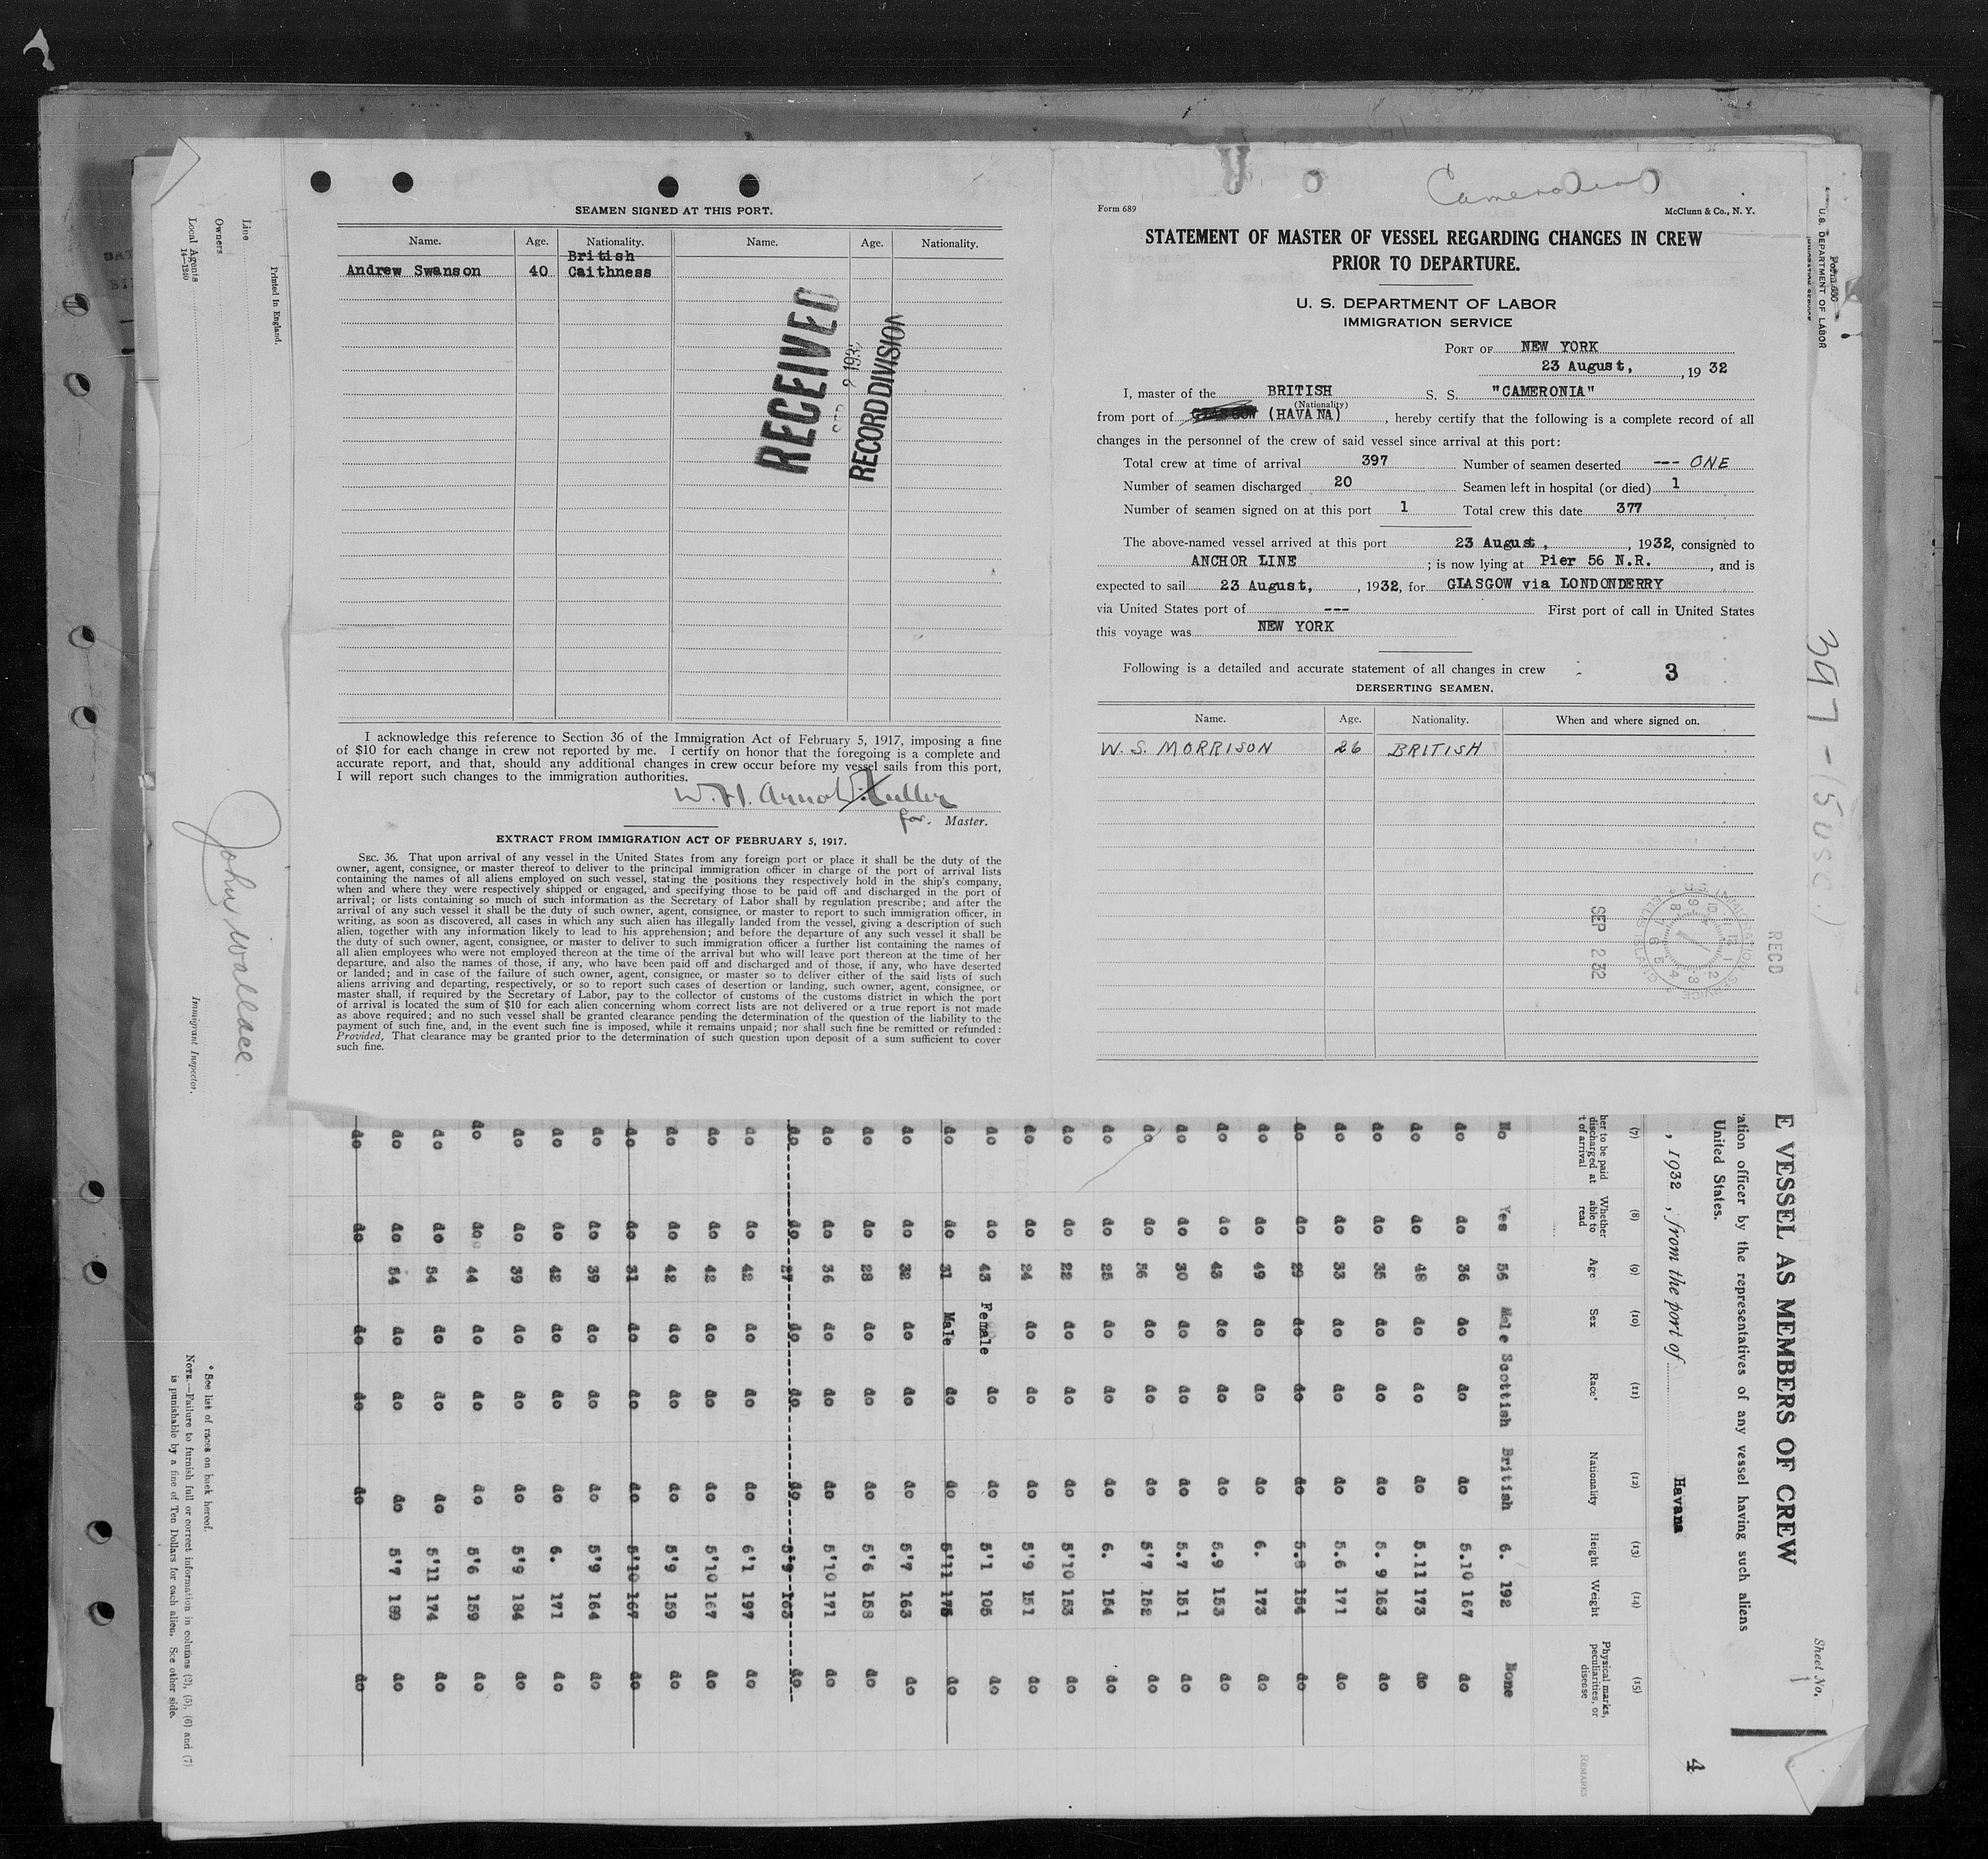 SEAMEN SIGNED AT THIS PORT.
Name. Age. Nationality. Name. Age. Nationality.
British
Andrew Swanson 40 Caithness
RECEIVED
RECORD DIVISION
I acknowledge this reference to Section 36 of the Immigration Act of February 5, 1917, imposing a fine
of $10 for each change in crew not reported by me. I certify on honor that the foregoing is a complete and
accurate report, and that, should any additional changes in crew occur before my vessel sails from this port,
I will report such changes to the immigration authorities.
for. Master.
EXTRACT FROM IMMIGRATION ACT OF FEBRUARY 5, 1917.
SEC. 36. That upon arrival of any vessel in the United States from any foreign port or place it shall be the duty of the
owner, agent, consignee, or master thereof to deliver to the principal immigration officer in charge of the port of arrival lists
containing the names of all aliens employed on such vessel, stating the positions they respectively hold in the ship's company,
when and where they were respectively shipped or engaged, and specifying those to be paid off and discharged in the port of
arrival; or lists containing so much of such information as the Secretary of Labor shall by regulation prescribe; and after the
arrival of any such vessel it shall be the duty of such owner, agent, consignee, or master to report to such immigration officer, in
writing, as soon as discovered, all cases in which any such alien has illegally landed from the vessel, giving a description of such
alien, together with any information likely to lead to his apprehension; and before the departure of any such vessel it shall be
the duty of such owner, agent, consignee, or master to deliver to such immigration officer a further list containing the names of
all alien employees who were not employed thereon at the time of the arrival but who will leave port thereon at the time of her
departure, and also the names of those, if any, who have been paid off and discharged and of those, if any, who have deserted
or landed; and in case of the failure of such owner, agent, consignee, or master so to deliver either of the said lists of such
aliens arriving and departing, respectively, or so to report such cases of desertion or landing, such owner, agent, consignee, or
master shall, if required by the Secretary of Labor, pay to the collector of customs of the customs district in which the port
of arrival is located the sum of $10 for each alien concerning whom correct lists are not delivered or a true report is not made
as above required; and no such vessel shall be granted clearance pending the determination of the question of the liability to the
payment of such fine, and, in the event such fine is imposed, while it remains unpaid; nor shall such fine be remitted or refunded:
Provided, That clearance may be granted prior to the determination of such question upon deposit of a sum sufficient to cover
such fine.
Cameronia
Form 689 McClunn & Co., N. Y.
STATEMENT OF MASTER OF VESSEL REGARDING CHANGES IN CREW
PRIOR TO DEPARTURE.
U. S. DEPARTMENT OF LABOR
IMMIGRATION SERVICE
PORT OF NEW YORK
23 August, , 19 32
I, master of the BRITISH S. S. "CAMERONIA"
(Nationality)
from port of GLASGOW (HAVANA) , hereby certify that the following is a complete record of all
changes in the personnel of the crew of said vessel since arrival at this port:
Total crew at time of arrival 397 Number of seamen deserted --- ONE
Number of seamen discharged 20 Seamen left in hospital (or died) 1
Number of seamen signed on at this port 1 Total crew this date 377
The above-named vessel arrived at this port 23 August, , 1932, consigned to
ANCHOR LINE ; is now lying at Pier 56 N.R. , and is
expected to sail 23 August, , 1932, for GLASGOW via LONDONDERRY
via United States port of --- First port of call in United States
this voyage was NEW YORK
Following is a detailed and accurate statement of all changes in crew 3
DERSERTING SEAMEN.
Name. Age. Nationality. When and where signed on.
W. S. MORRISON 26 BRITISH
SEP 2 32
RECD
Line
Owners
Local Agents
14—1240
Printed in England.
John Wallace.
Immigrant Inspector.
* See list of races on back hereof.
NOTE.—Failure to furnish full or correct information in columns (2), (5), (6) and (7)
is punishable by a fine of Ten Dollars for each alien. See other side.
Form 680
U.S. DEPARTMENT OF LABOR
IMMIGRATION SERVICE
Sheet No. 1
4
E VESSEL AS MEMBERS OF CREW
ation officer by the representatives of any vessel having such aliens
United States.
, 1932 , from the port of Havana
(7) (8) (9) (10) (11) (12) (13) (14) (15)
her to be paid discharged at t of arrival Whether able to read Age Sex Race* Nationality Height Weight Physical marks, peculiarities, or disease REMARKS
No Yes 56 Male Scottish British 6. 192 None
do do 36 do do do 5.10 167 do
do do 48 do do do 5.11 173 do
do do 35 do do do 5.9 163 do
do do 33 do do do 5.6 171 do
do do 29 do do do 5.8 154 do
do do 49 do do do 6. 173 do
do do 43 do do do 5.9 153 do
do do 30 do do do 5.7 151 do
do do 36 do do do 5'7 152 do
do do 25 do do do 6. 154 do
do do 22 do do do 5'10 153 do
do do 24 do do do 5'9 151 do
do do 43 Female do do 5'1 105 do
do do 31 Male do do 5'11 175 do
do do 32 do do do 5'7 163 do
do do 28 do do do 5'6 158 do
do do 36 do do do 5'10 171 do
do do 27 do do do 5'9 163 do
do do 42 do do do 6'1 197 do
do do 42 do do do 5'10 167 do
do do 42 do do do 5'9 159 do
do do 31 do do do 5'10 167 do
do do 39 do do do 5'9 164 do
do do 42 do do do 6. 171 do
do do 39 do do do 5'9 184 do
do do 44 do do do 5'6 159 do
do do 54 do do do 5'11 174 do
do do 54 do do do 5'7 189 do
do do do do do do